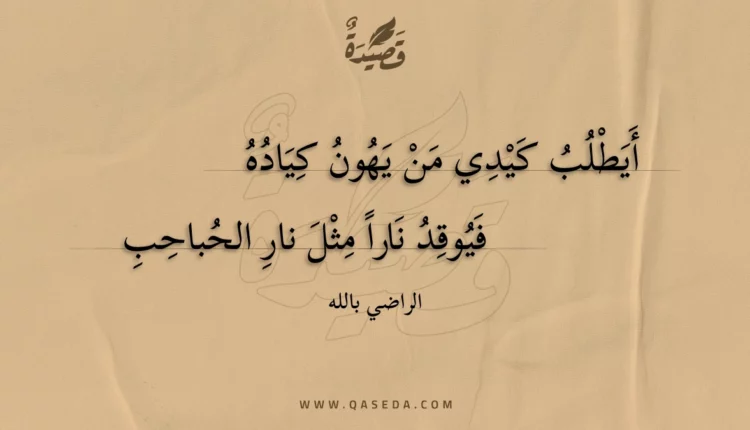 قَصِيدَةٌ
أَيَطْلُبُ كَيْدِي مَنْ يَهُونُ كِيَادُهُ
فَيُوقِدُ نَاراً مِثْلَ نارِ الحُباحِبِ
الراضي بالله
WWW.QASEDA.COM